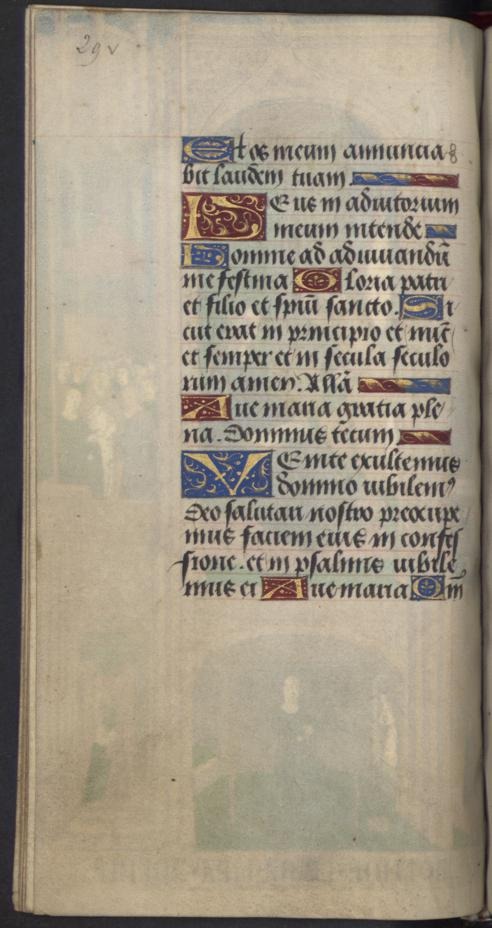 29v
Et os meum annuncia
bit laudem tuam
Deus in adiutorium
meum intende
Domine ad adiuuandū
me festina Gloria patri
et filio et spiū sancto. Si
cut erat in principio et nūc
et semper et in secula seculo
rum amen. Allā
Aue maria gratia ple
na. Dominus tecum
Venite exultemus
domino iubilemꝰ
deo salutari nostro preocupe
mus faciem eius in confes
sione. et in psalmis iubile
mus ei Aue maria Qm̄